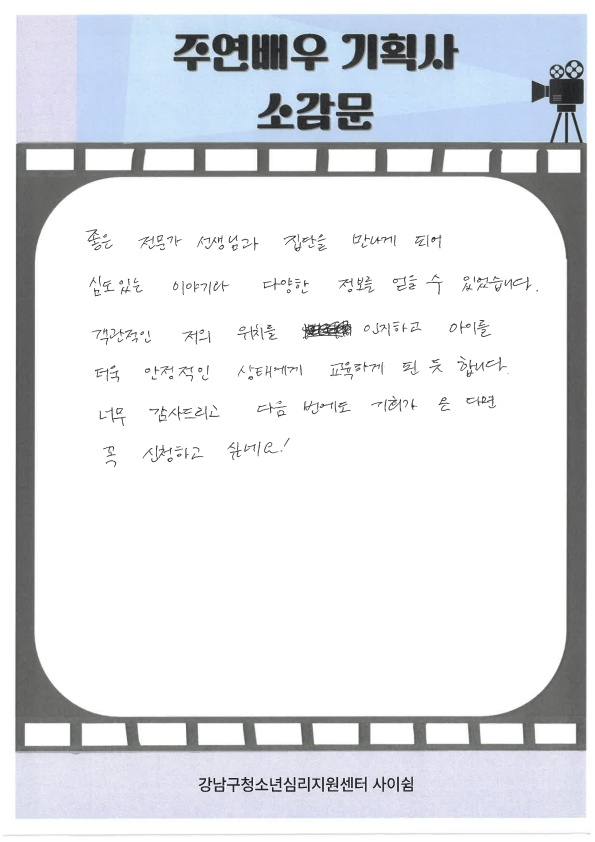 주연배우 기획사
소감문
좋은 전문가 선생님과 집단을 만나게 되어
심도있는 이야기와 다양한 정보를 얻을 수 있었습니다.
객관적인 저의 위치를 인지하고 아이를
더욱 안정적인 상태에게 교육하게 된 듯 합니다.
너무 감사드리고 다음 번에도 기회가 온 다면
꼭 신청하고 싶네요!
강남구청소년심리지원센터 사이쉼